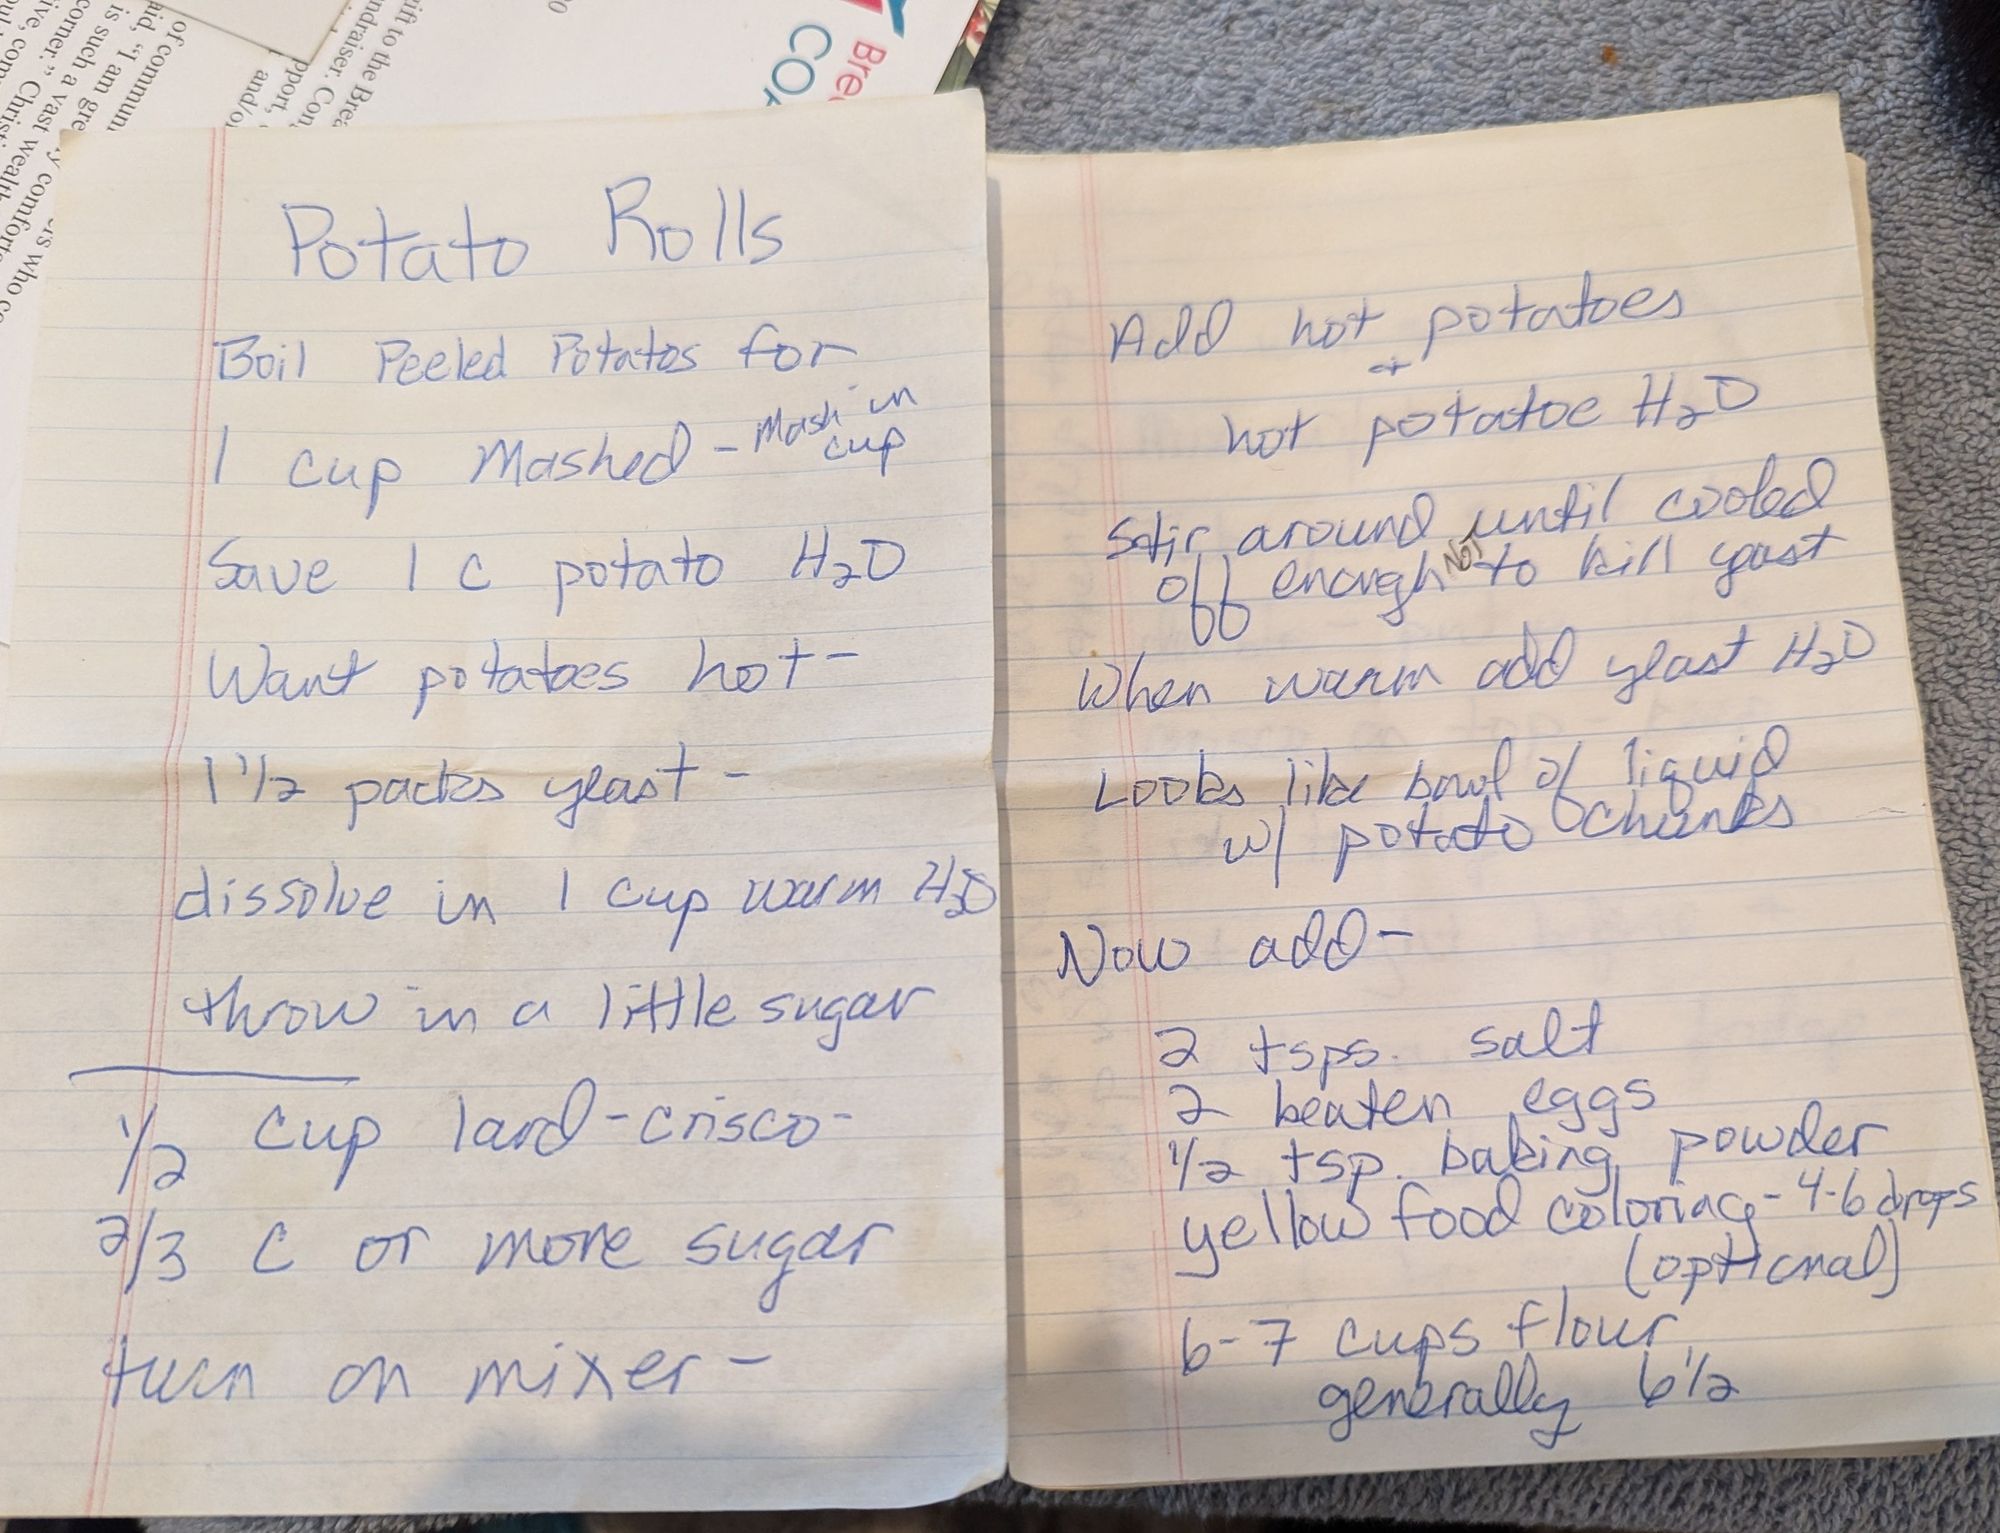 of communi
aid, "I am gre
is such a vast
corner." Christ
wealth
comfort
ers who co
ift to the Brea
ndraiser. Con
pport,
and/o
Bre
CO
00
Potato Rolls
Boil Peeled Potatos for
1 cup Mashed - Mash in
cup
Save 1 C potato H2O
Want potatoes hot-
1 1/2 packs yeast -
dissolve in 1 cup warm H2O
throw in a little sugar
1/2 cup lard-crisco-
2/3 C or more sugar
turn on mixer -
Add hot potatoes
+
hot potatoe H2O
Stir around until cooled
off enough NOT to kill yeast
When warm add yeast H2O
Looks like bowl of liquid
w/ potato chunks
Now add-
2 tsps. salt
2 beaten eggs
1/2 tsp. baking powder
yellow food coloring - 4-6 drops
(optional)
6-7 cups flour
generally 6 1/2